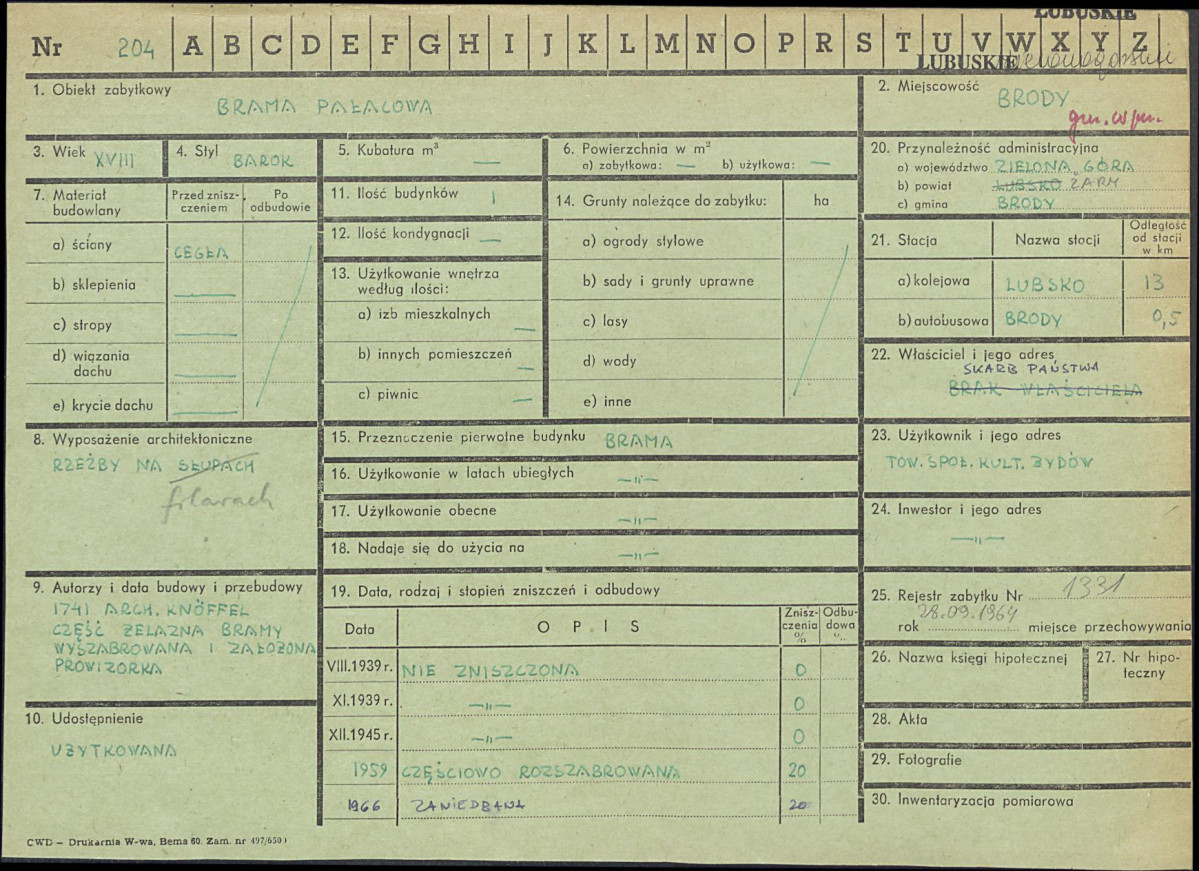 LUBUSKIE
Nr 204 A B C D E F G H I J K L M N O P R S T U V W X Y Z
LUBUSKIE
1. Obiekt zabytkowy
BRAMA PAŁACOWA
2. Miejscowość
BRODY
gm. w/m.
3. Wiek XVIII
4. Styl BAROK
5. Kubatura m³ —
6. Powierzchnia w m²
a) zabytkowa: — b) użytkowa: —
20. Przynależność administracyjna
a) województwo ZIELONA GÓRA
b) powiat LUBSKO ŻARY
c) gmina BRODY
7. Materiał budowlany
Przed zniszczeniem
Po odbudowie
a) ściany CEGŁA
b) sklepienia —
c) stropy —
d) wiązania dachu —
e) krycie dachu —
11. Ilość budynków 1
12. Ilość kondygnacji —
13. Użytkowanie wnętrza
według ilości:
a) izb mieszkalnych —
b) innych pomieszczeń —
c) piwnic —
14. Grunty należące do zabytku: ha
a) ogrody stylowe
b) sady i grunty uprawne
c) lasy
d) wody
e) inne
21. Stacja
Nazwa stacji
Odległość od stacji w km
a) kolejowa LUBSKO 13
b) autobusowa BRODY 0,5
22. Właściciel i jego adres
SKARB PAŃSTWA
BRAK WŁAŚCICIELA
8. Wyposażenie architektoniczne
RZEŹBY NA SŁUPACH
filarach
15. Przeznaczenie pierwotne budynku BRAMA
16. Użytkowanie w latach ubiegłych —„—
17. Użytkowanie obecne —„—
18. Nadaje się do użycia na —„—
23. Użytkownik i jego adres
TOW. SPOŁ. KULT. ŻYDÓW
24. Inwestor i jego adres
—„—
9. Autorzy i data budowy i przebudowy
1741 ARCH. KNÖFFEL
CZĘŚĆ ŻELAZNA BRAMY
WYSZABROWANA I ZAŁOŻONA
PROWIZORKA
10. Udostępnienie
UŻYTKOWANA
19. Data, rodzaj i stopień zniszczeń i odbudowy
Data
OPIS
Zniszczenia %
Odbudowa %
VIII.1939 r. NIE ZNISZCZONA 0
XI.1939 r. —„— 0
XII.1945 r. —„— 0
1959 CZĘŚCIOWO ROZSZABROWANA 20
1966 ZANIEDBANA 20
25. Rejestr zabytku Nr 1331
28.09.1964
rok miejsce przechowywania
26. Nazwa księgi hipotecznej
27. Nr hipoteczny
28. Akta
29. Fotografie
30. Inwentaryzacja pomiarowa
CWD – Drukarnia W-wa, Bema 60. Zam. nr 497/650)